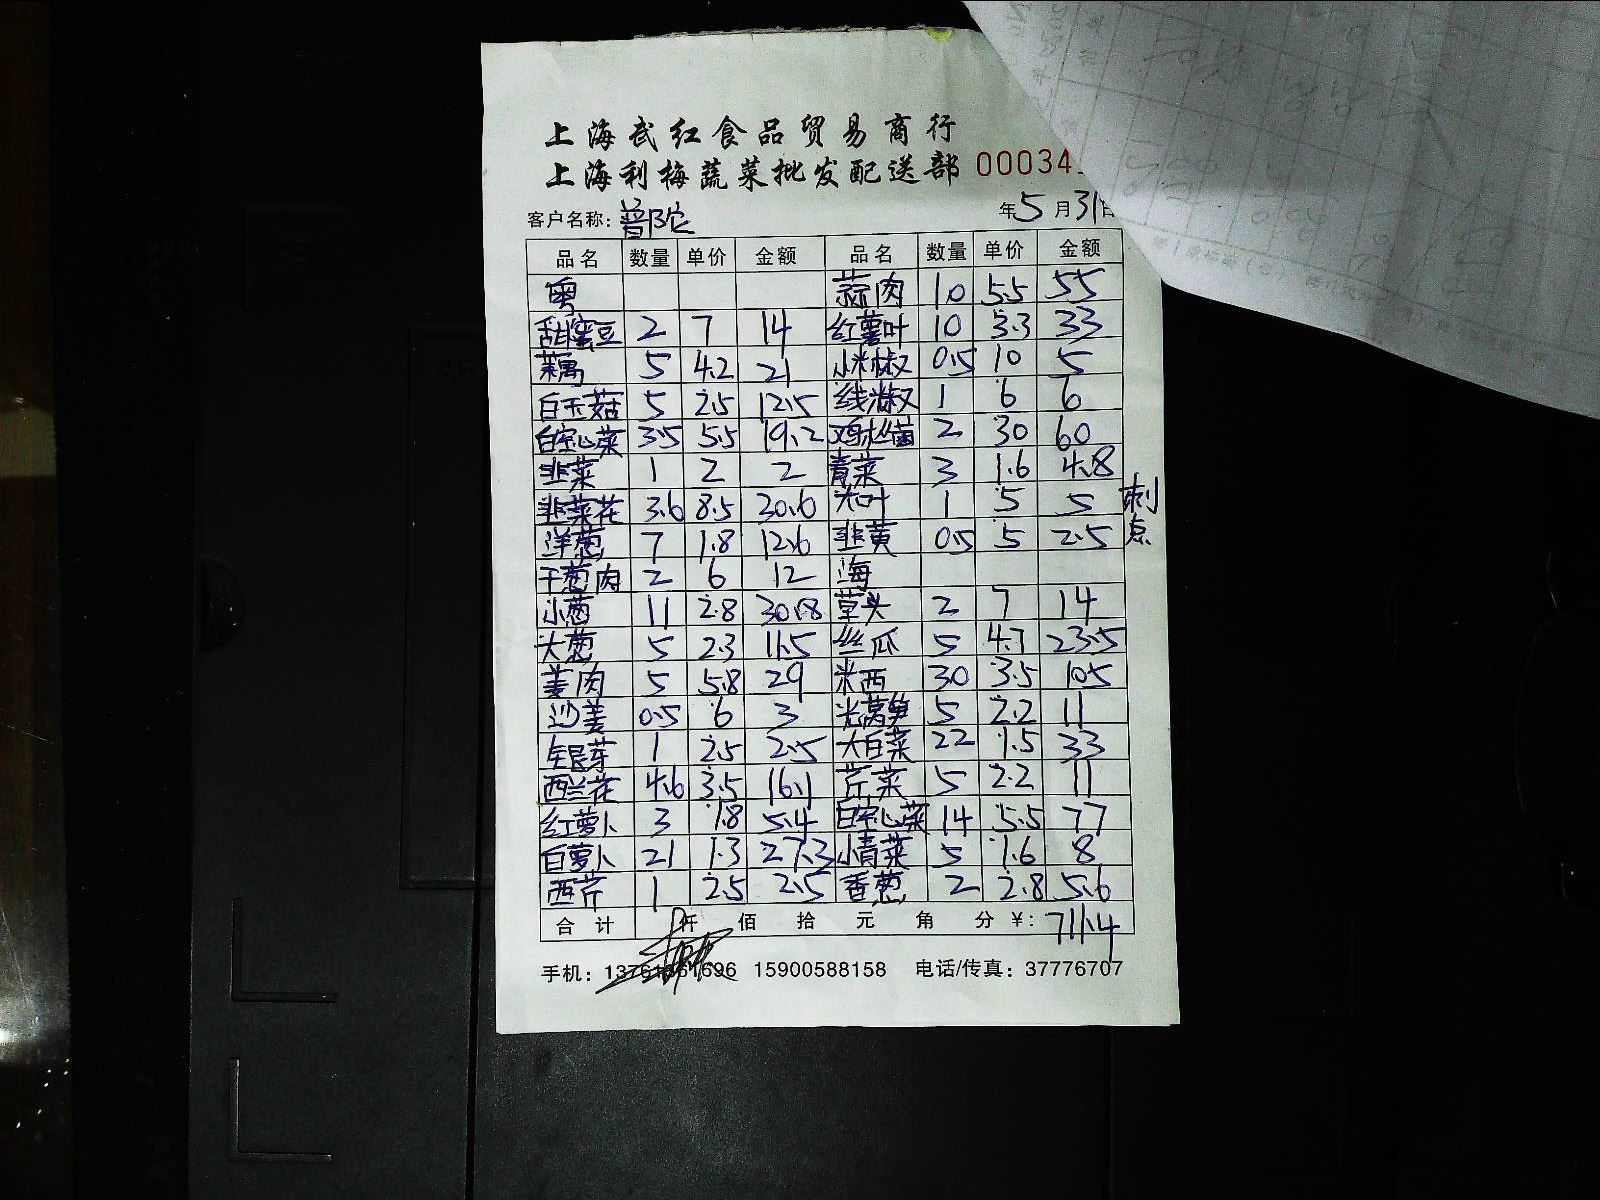 上海武红食品贸易商行
上海利梅蔬菜批发配送部 00034
客户名称：普陀 年5月31日
品名 数量 单价 金额 品名 数量 单价 金额
粤 蒜肉 10 5.5 55
甜蜜豆 2 7 14 红薯叶 10 3.3 33
藕 5 4.2 21 小米椒 0.5 10 5
白玉菇 5 2.5 12.5 线米椒 1 6 6
白空心菜 3.5 5.5 19.2 鸡枞菌 2 30 60
韭菜 1 2 2 青菜 3 1.6 4.8
韭菜花 3.6 8.5 30.6 木叶 1 5 5 刺
洋葱 7 1.8 12.6 韭黄 0.5 5 2.5
干葱肉 2 6 12 海
小葱 11 2.8 30.8 草头 2 7 14
大葱 5 2.3 11.5 丝瓜 5 4.7 23.5
姜肉 5 5.8 29 米西 30 3.5 105
沙姜 0.5 6 3 光莴笋 5 2.2 11
银芽 1 2.5 2.5 大白菜 22 1.5 33
西兰花 4.6 3.5 16.1 芹菜 5 2.2 11
红萝卜 3 1.8 5.4 白空心菜 14 5.5 77
白萝卜 21 1.3 27.3 小青菜 5 1.6 8
西芹 1 2.5 2.5 香葱 2 2.8 5.6
合计 仟 佰 拾 元 角 分 ¥: 711.4
手机： 15900588158 电话/传真：37776707